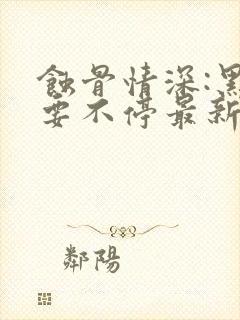 蝕骨情深:黑
要不停最新
鄰陽